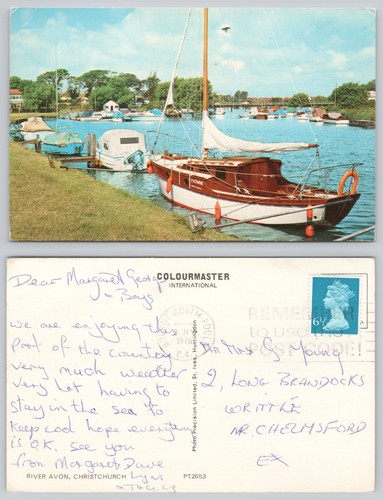 Dear Margaret George
+ Boys
we are enjoying this
part of the country
very much weather
very hot having to
stay in the sea to
keep cool hope everything
is O.K. see you
from Margaret Dave
Lyn
+ Tracy
RIVER AVON, CHRISTCHURCH
PT2653
COLOURMASTER
INTERNATIONAL
Photo Precision Limited, St. Ives, Huntingdon
1976
REMEMBER
to use the
POSTCODE!
6½
Mr Mrs G Young
2, LONG BRANDOCKS
WRITTLE
NR. CHELMSFORD
EX